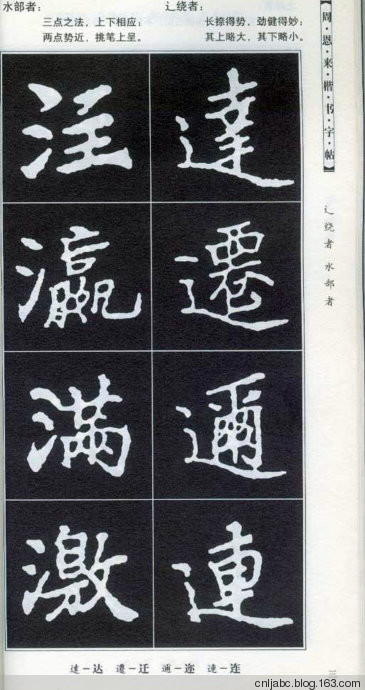 水部者：
三点之法，上下相应；
两点势近，挑笔上呈。
辶绕者：
长捺得势，劲健得妙；
其上略大，其下略小。
【周·恩·来·楷·书·字·帖】
辶绕者 水部者
注 達
瀛 遷
满 邇
激 連
达—达 遷—迁 邇—迩 連—连
cnljabc.blog.163.com